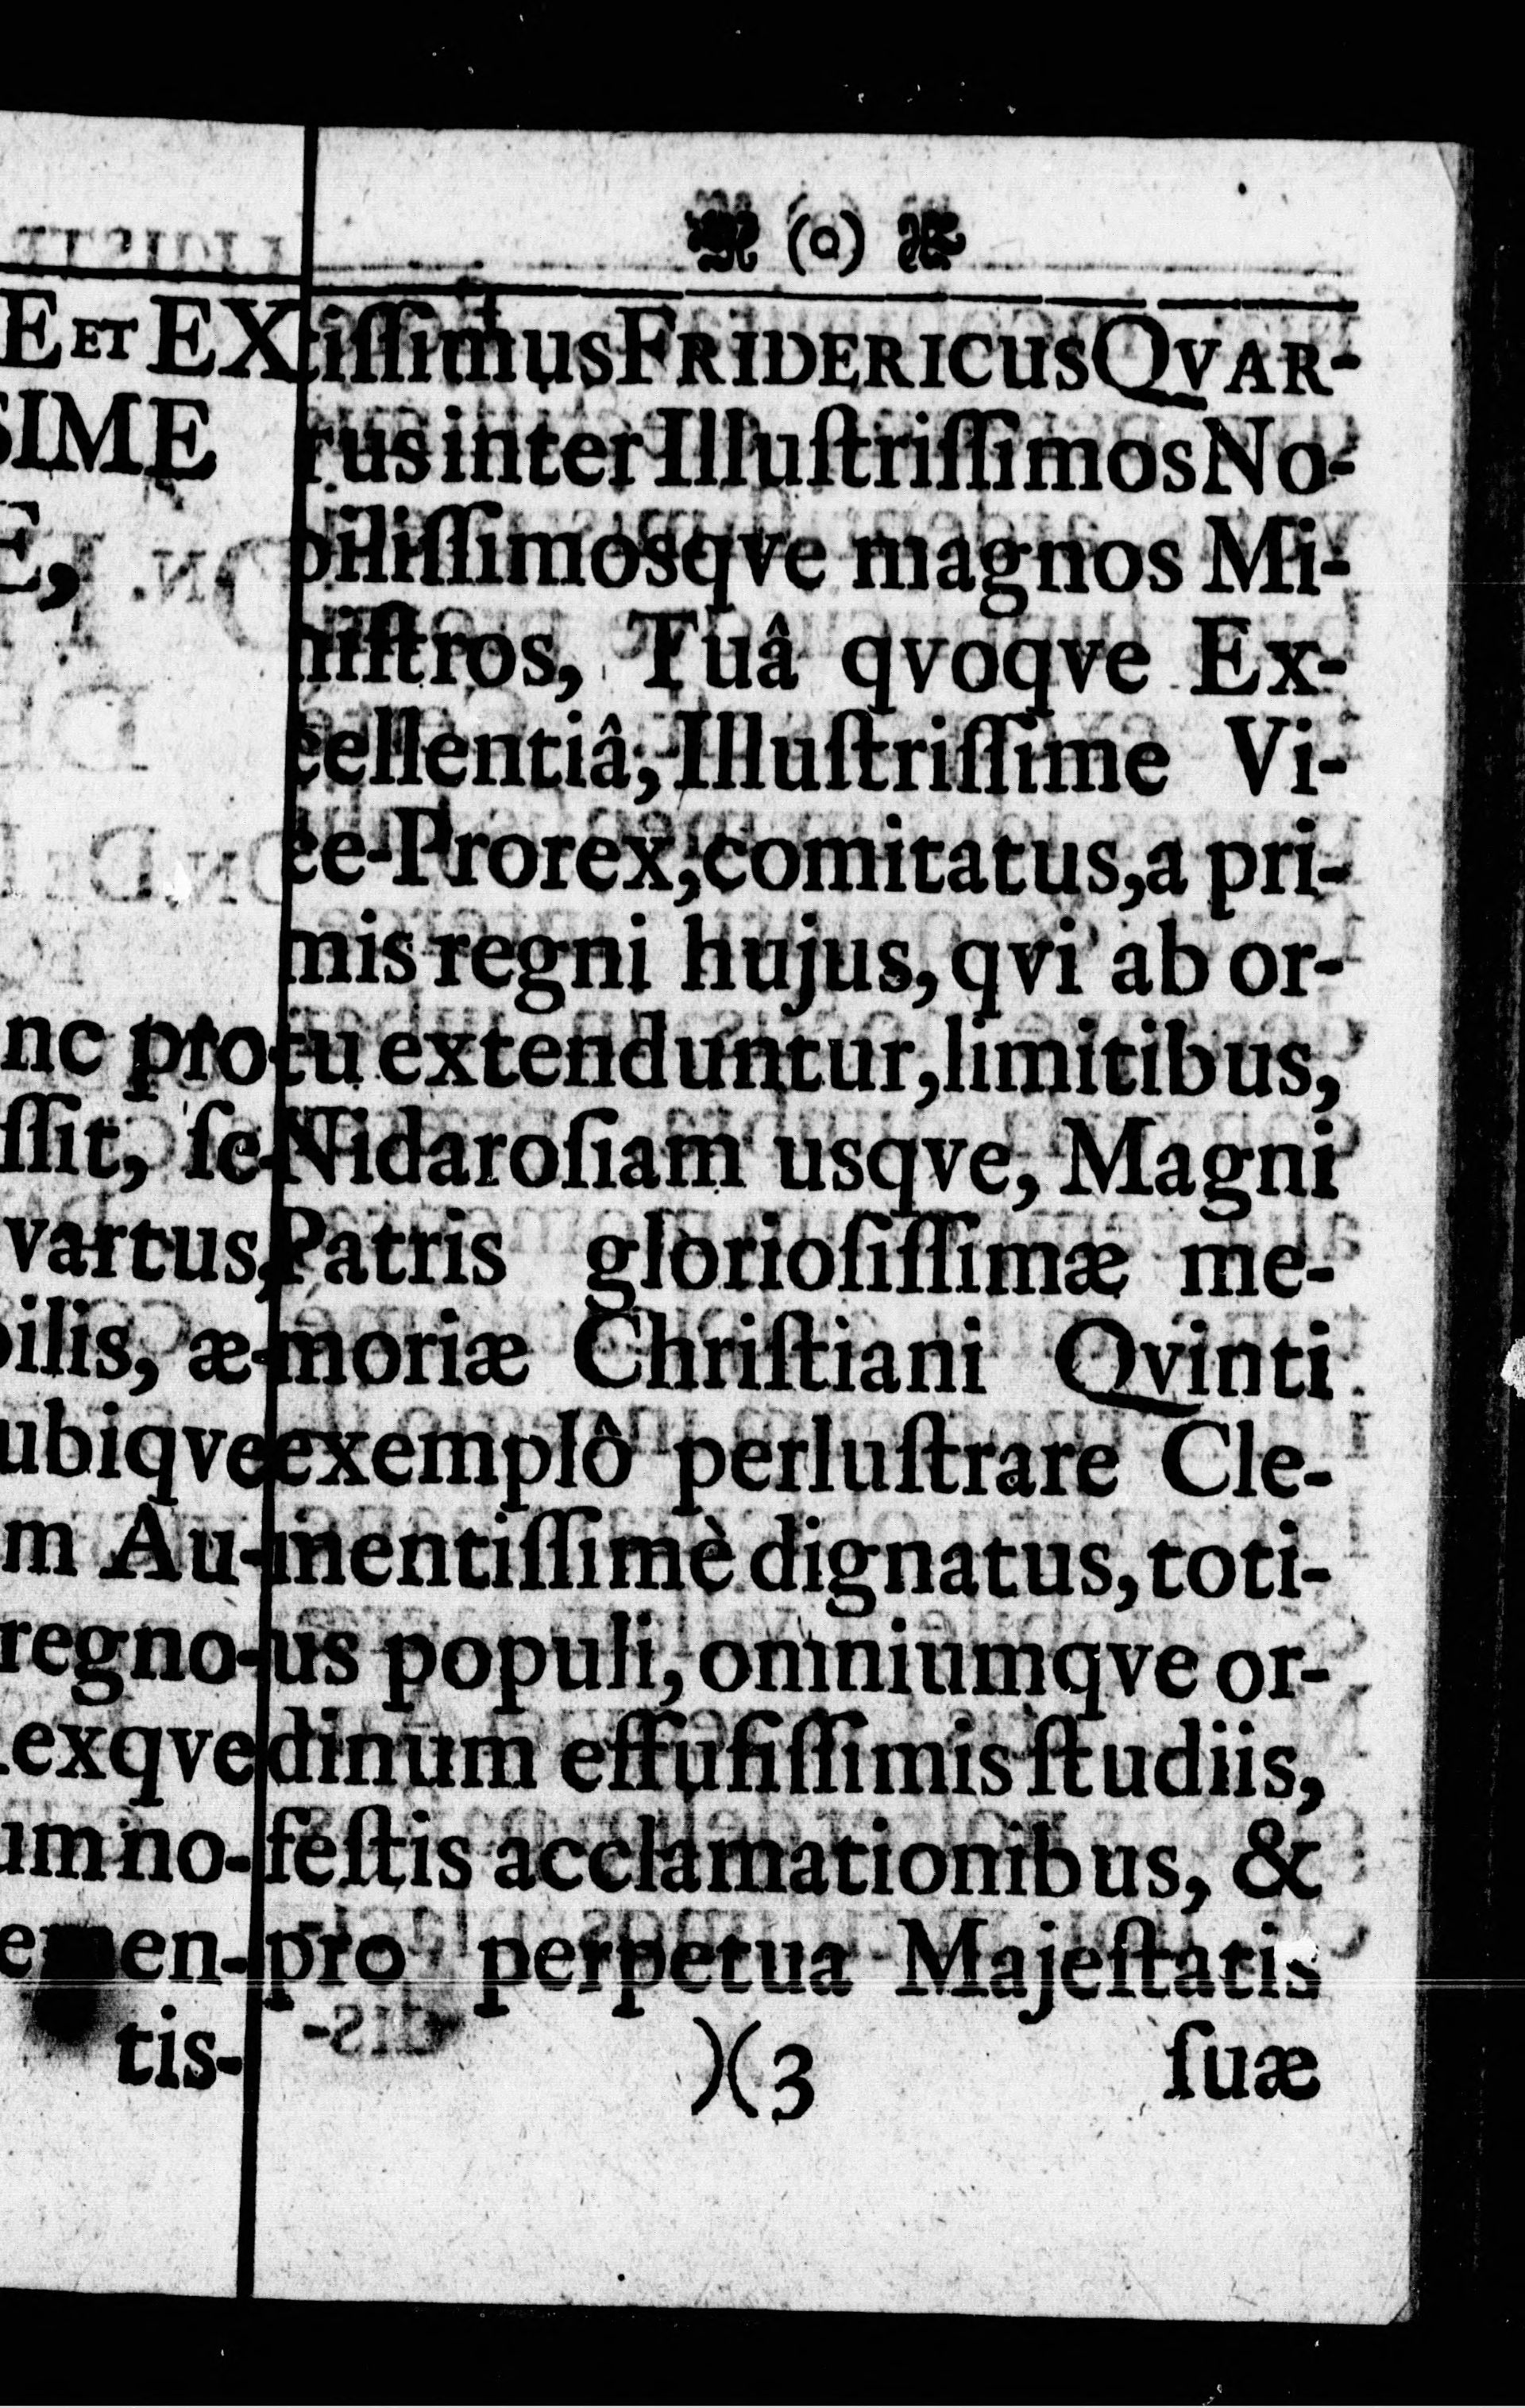 (o)
tiſſimus FRIDERICUS QVAR-
tus inter Illuſtriſſimos No-
biliſſimosqve magnos Mi-
niſtros, Tuâ qvoqve Ex-
cellentiâ, Illuſtriſſime Vi-
ce-Prorex, comitatus, a pri-
mis regni hujus, qvi ab or-
tu extenduntur, limitibus,
Nidaroſiam usqve, Magni
Patris glorioſiſſimæ me-
moriæ Chriſtiani Qvinti
exemplô perluſtrare Cle-
mentiſſimè dignatus, toti-
us populi, omniumqve or-
dinum effuſiſſimis ſtudiis,
feſtis acclamationibus, &
pro perpetua Majeſtatis
)(3 ſuæ